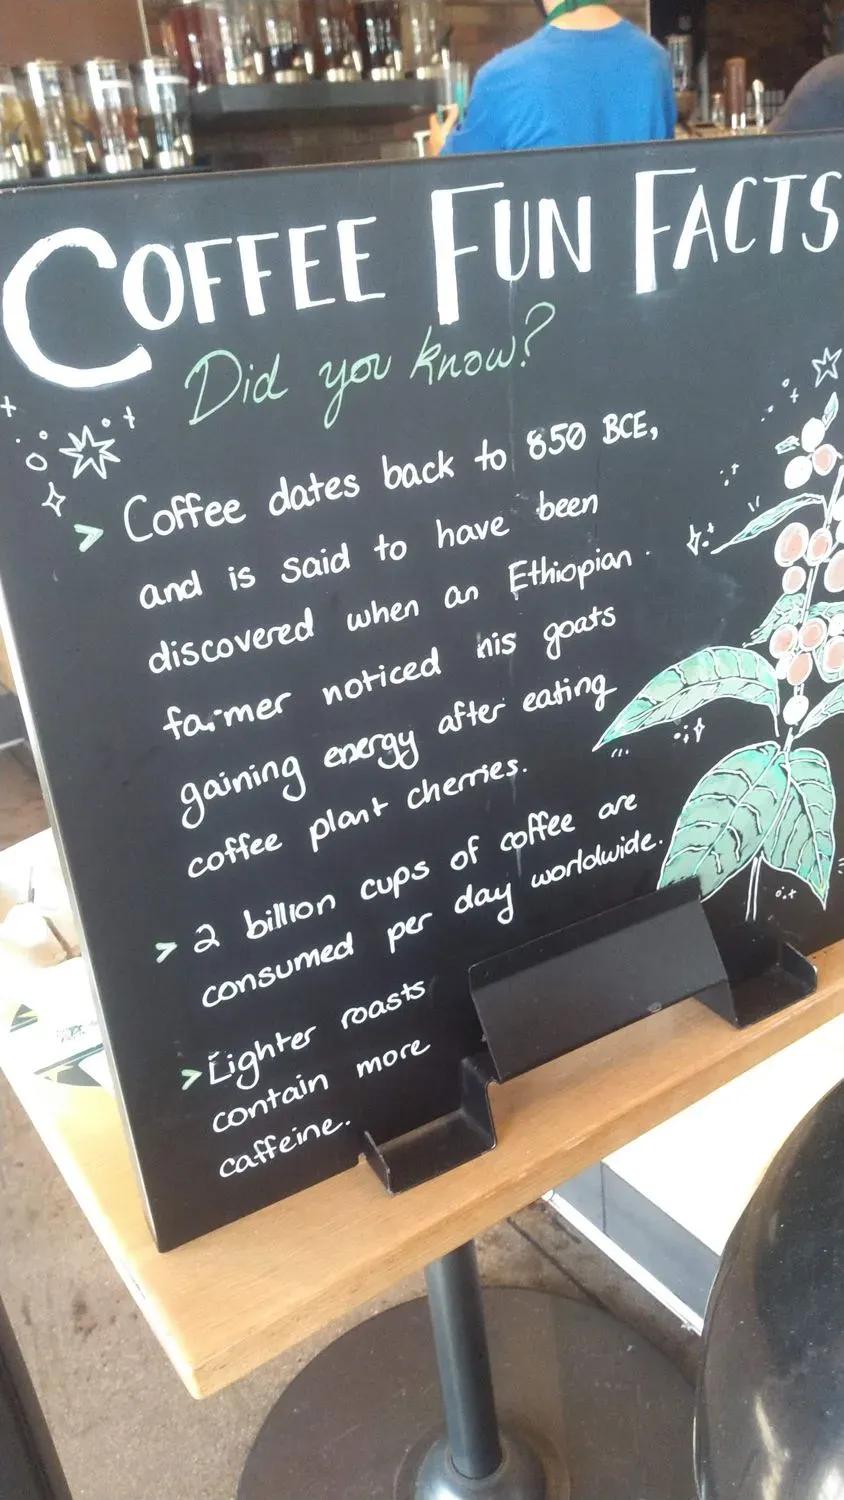 COFFEE FUN FACTS
Did you know?
> Coffee dates back to 850 BCE,
and is said to have been
discovered when an Ethiopian
farmer noticed his goats
gaining energy after eating
coffee plant cherries.
> 2 billion cups of coffee are
consumed per day worldwide.
> Lighter roasts
contain more
caffeine.